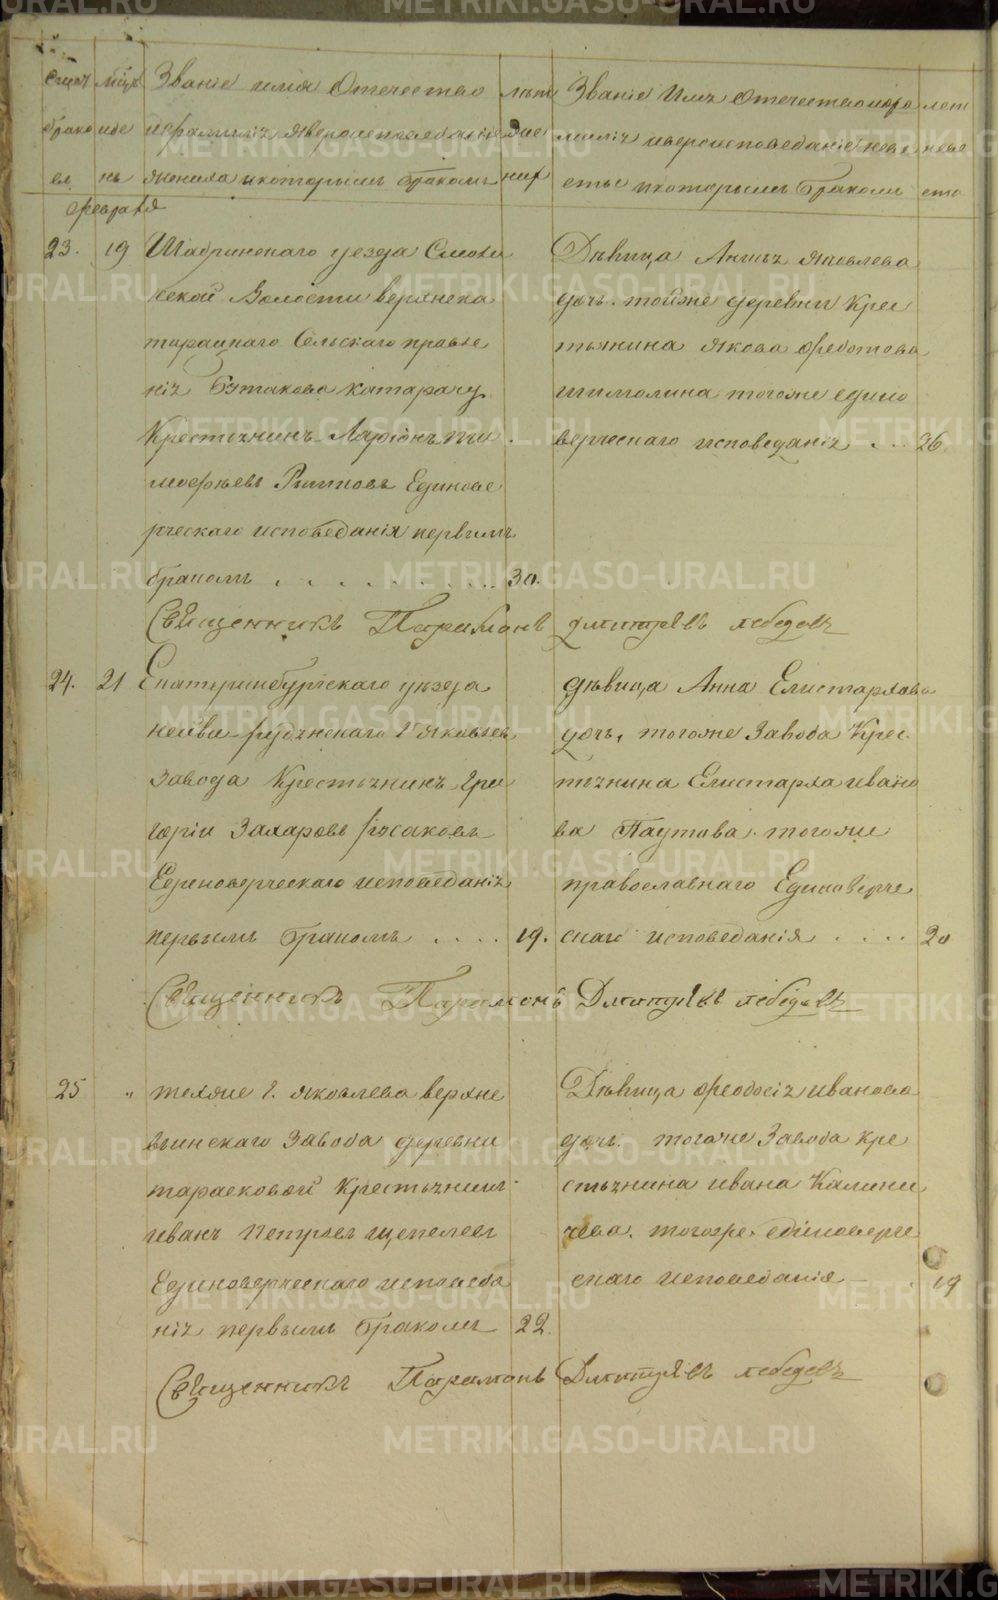 Счет мѣцъ Званіе имя Отечество лѣта Званіе Имя Отечество и фа лет
брако иде ифамиліи ивероисповеданіе жениха милія ивероисповеданіе неве неве
въ нь жениха икоторымъ бракомъ ниха сты икоторымъ бракомъ сты
февраля
23. 19 Шадринскаго уезда Смоли
нской Волости верхнека
тарацкаго Сельскаго правле
нія Бутакова катарачу
Крестьянинъ Ларіонъ ти
мофѣевъ Рычковъ Единове
рческаго исповѣданія первымъ
бракомъ . . . . . . . . 30.
Дѣвица Анисья яковлева
дочь. тойже деревни Крес
тьянина якова федотова
шимолина тогоже едино
верческаго исповеданія . . . 26.
Священникъ Парамонъ дмитріевъ лебедевъ
24. 21 Екатеринбургскаго уѣзда
нейво-рудянскаго Г. яковлев
завода Крестьянинъ Гри
горіи Захаровъ Русаковъ
Едеиноверческаго исповѣданія
первымъ бракомъ . . . . 19.
дѣвица Анна Елистархова
дочь, тогоже Завода Крес
тьянина Елистарха ивано
ва Паутова. тогоже
православнаго Единоверче
скаго исповеданія . . . . 20
Священникъ Парамонъ Дмитріевъ лебедевъ
25 „ техже Г. яковлева верхне
винскаго Завода деревни
тарасковой Крестьянинъ
иванъ Петровъ щепелев
Единоверческаго исповеда
нія первымъ бракомъ 22.
Дѣвица феодосія иванова
дочь. тогоже Завода кре
стьянина ивана Калини
чева. тогоже. единоверче
скаго исповеданія . 19
Священникъ Парамонъ Дмитріевъ лебедевъ
METRIKI.GASO-URAL.RU